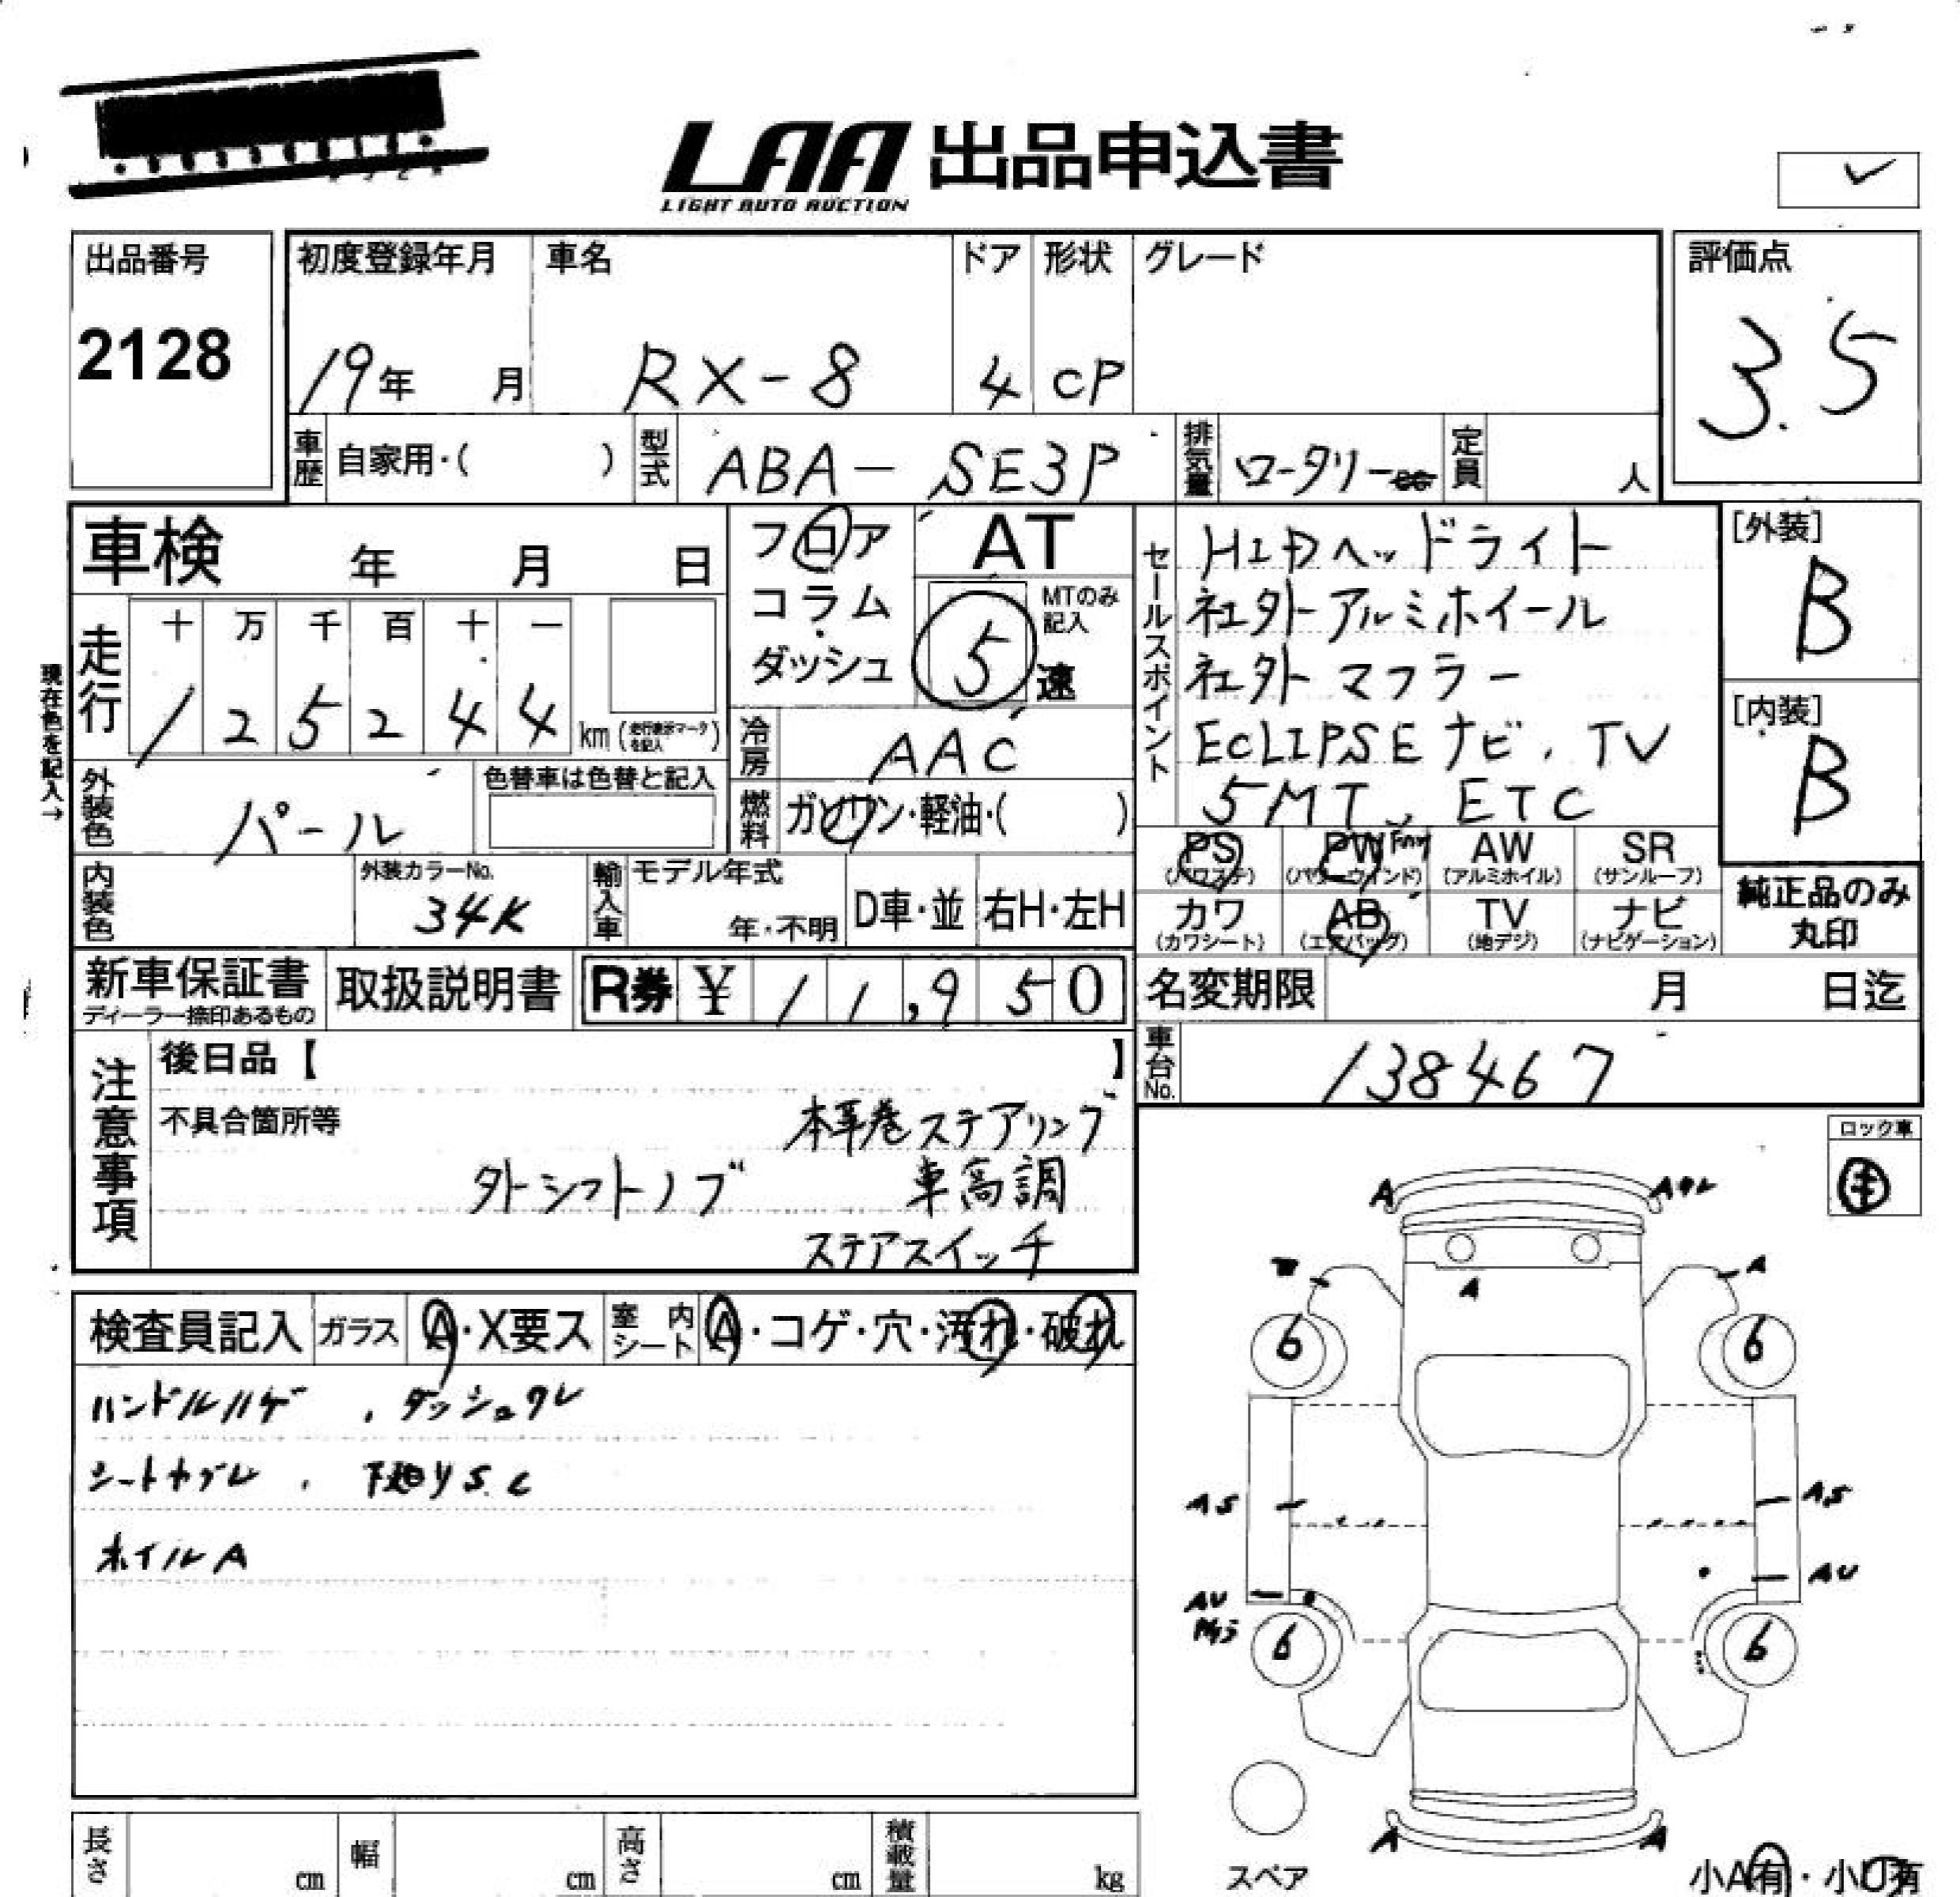 LAA 出品申込書
LIGHT AUTO AUCTION
出品番号
2128
初度登録年月
19年 月
車名
RX-8
ドア
4
形状
CP
グレード
評価点
3.5
車歴 自家用・( )
型式 ABA-SE3P
排気量 ロータリー cc
定員 人
車検 年 月 日
フロア
コラム
ダッシュ
AT
MTのみ記入
5速
セールスポイント
HIDヘッドライト
社外アルミホイール
社外マフラー
ECLIPSEナビ、TV
5MT、ETC
[外装]
B
[内装]
B
現在色を記入→
走行
十 万 千 百 十 一
1 2 5 2 4 4 km(走行表示マークを記入)
冷房 AAC
外装色 パール
色替車は色替と記入
燃料 ガソリン・軽油・( )
PS
(パワステ)
PW
(パワーウインド)
AW
(アルミホイル)
SR
(サンルーフ)
カワ
(カワシート)
AB
(エアバッグ)
TV
(地デジ)
ナビ
(ナビゲーション)
純正品のみ
丸印
内装色
外装カラーNo.
34K
輸入車
モデル年式
年・不明
D車・並
右H・左H
新車保証書
ディーラー捺印あるもの
取扱説明書
R券 ¥ 11,950
名変期限 月 日迄
車台No. 138467
注意事項
後日品【 】
不具合箇所等
本革巻ステアリング
外シフトノブ 車高調
ステアスイッチ
ロック車
検査員記入 ガラス A・X要ス 室内シート A・コゲ・穴・汚れ・破れ
ハンドルハゲ、ダッシュワレ
シートヤブレ、下廻りS.C
ホイルA
A
Aワレ
A
A
6
6
AS
A,S
AU
AU
6
6
A
A
スペア
小A有・小U有
長さ cm
幅 cm
高さ cm
積載量 kg